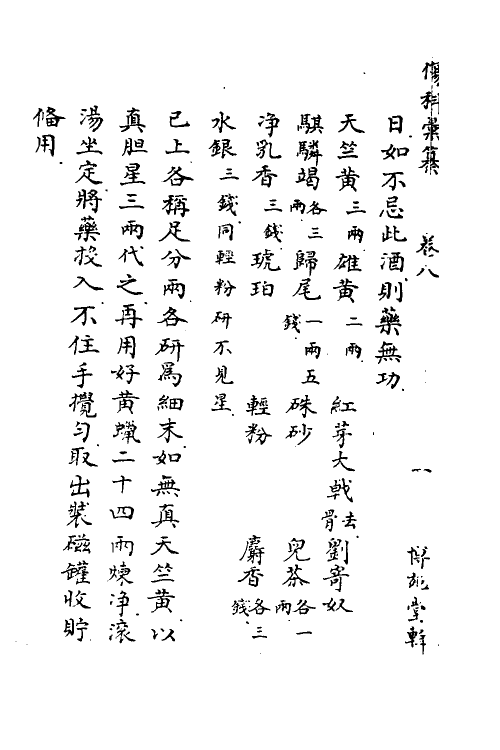 傷科彙纂　卷八　一　博施堂輯
日如不忌此酒則藥無功
天竺黃三兩雄黃二兩　紅芽大戟去骨劉寄奴
騏驎竭各三兩歸尾一兩五錢硃砂　兒茶各一兩
净乳香三錢琥珀　輕粉　麝香各三錢
水銀三錢同輕粉研不見星
已上各稱足分兩各研爲細末如無真天竺黃以
真胆星三兩代之再用好黃蠟二十四兩煉净滚
湯坐定將藥投入不住手攪勻取出裝磁罐收貯
俻用